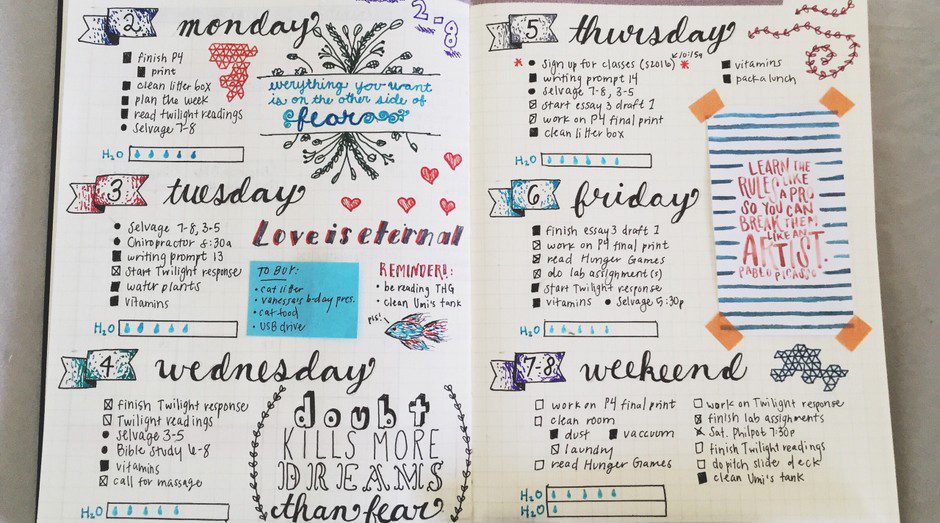 2-8
2 monday
finish P4
print
clean litter box
plan the week
read twilight readings
Selvage 7-8
H2O
everything you want
is on the other side of
fear
3 tuesday
Selvage 7-8, 3-5
Chiropractor 8:30a
writing prompt 13
Start Twilight response
water plants
vitamins
H2O
Love is eternal
TO BUY:
• cat litter
• vanessa's b-day pres.
• cat food
• USB drive
REMINDER!:
• be reading THG
• clean Umi's tank
pls!
4 wednesday
finish Twilight response
Twilight readings
Selvage 3-5
Bible Study 6-8
vitamins
call for massage
H2O
doubt
KILLS MORE
DREAMS
than fear
5 thursday
* Sign up for classes (S2016) *
writing prompt 14
selvage 7-8, 3-5
start essay 3 draft 1
work on P4 final print
clean litter box
vitamins
pack a lunch
H2O
6 friday
finish essay 3 draft 1
work on P4 final print
read Hunger Games
do lab assignment(s)
start Twilight response
vitamins • Selvage 5:30p
H2O
LEARN THE
RULES LIKE
A PRO,
SO YOU CAN
BREAK THEM
LIKE AN
ARTIST.
PABLO PICASSO
7-8 weekend
work on P4 final print
clean room
dust vacuum
laundry
read Hunger Games
work on Twilight response
finish lab assignments
Sat. Philpot 7:30p
finish Twilight readings
do pitch slide deck
clean Umi's tank
H2O
H2O